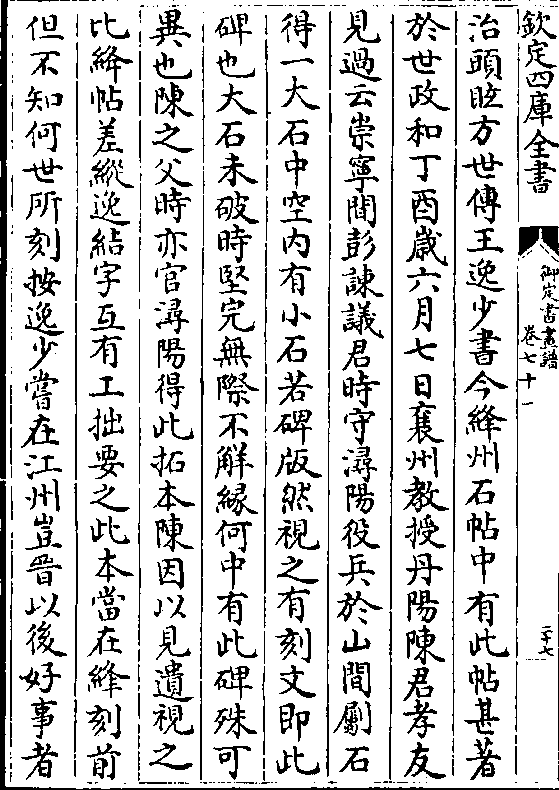 欽定四庫全書
御定書畫譜
卷七十一
二十七
治頭眩方世傳王逸少書今絳州石帖中有此帖甚著
於世政和丁酉歲六月七日襄州教授丹陽陳君孝友
見過云崇寧間彭諫議君時守潯陽役兵於山間劚石
得一大石中空内有小石若碑版然視之有刻文即此
碑也大石未破時堅完無際不解緣何中有此碑殊可
異也陳之父時亦官潯陽得此拓本陳因以見遺視之
比絳帖差縱逸結字互有工拙要之此本當在絳刻前
但不知何世所刻按逸少嘗在江州豈晉以後好事者